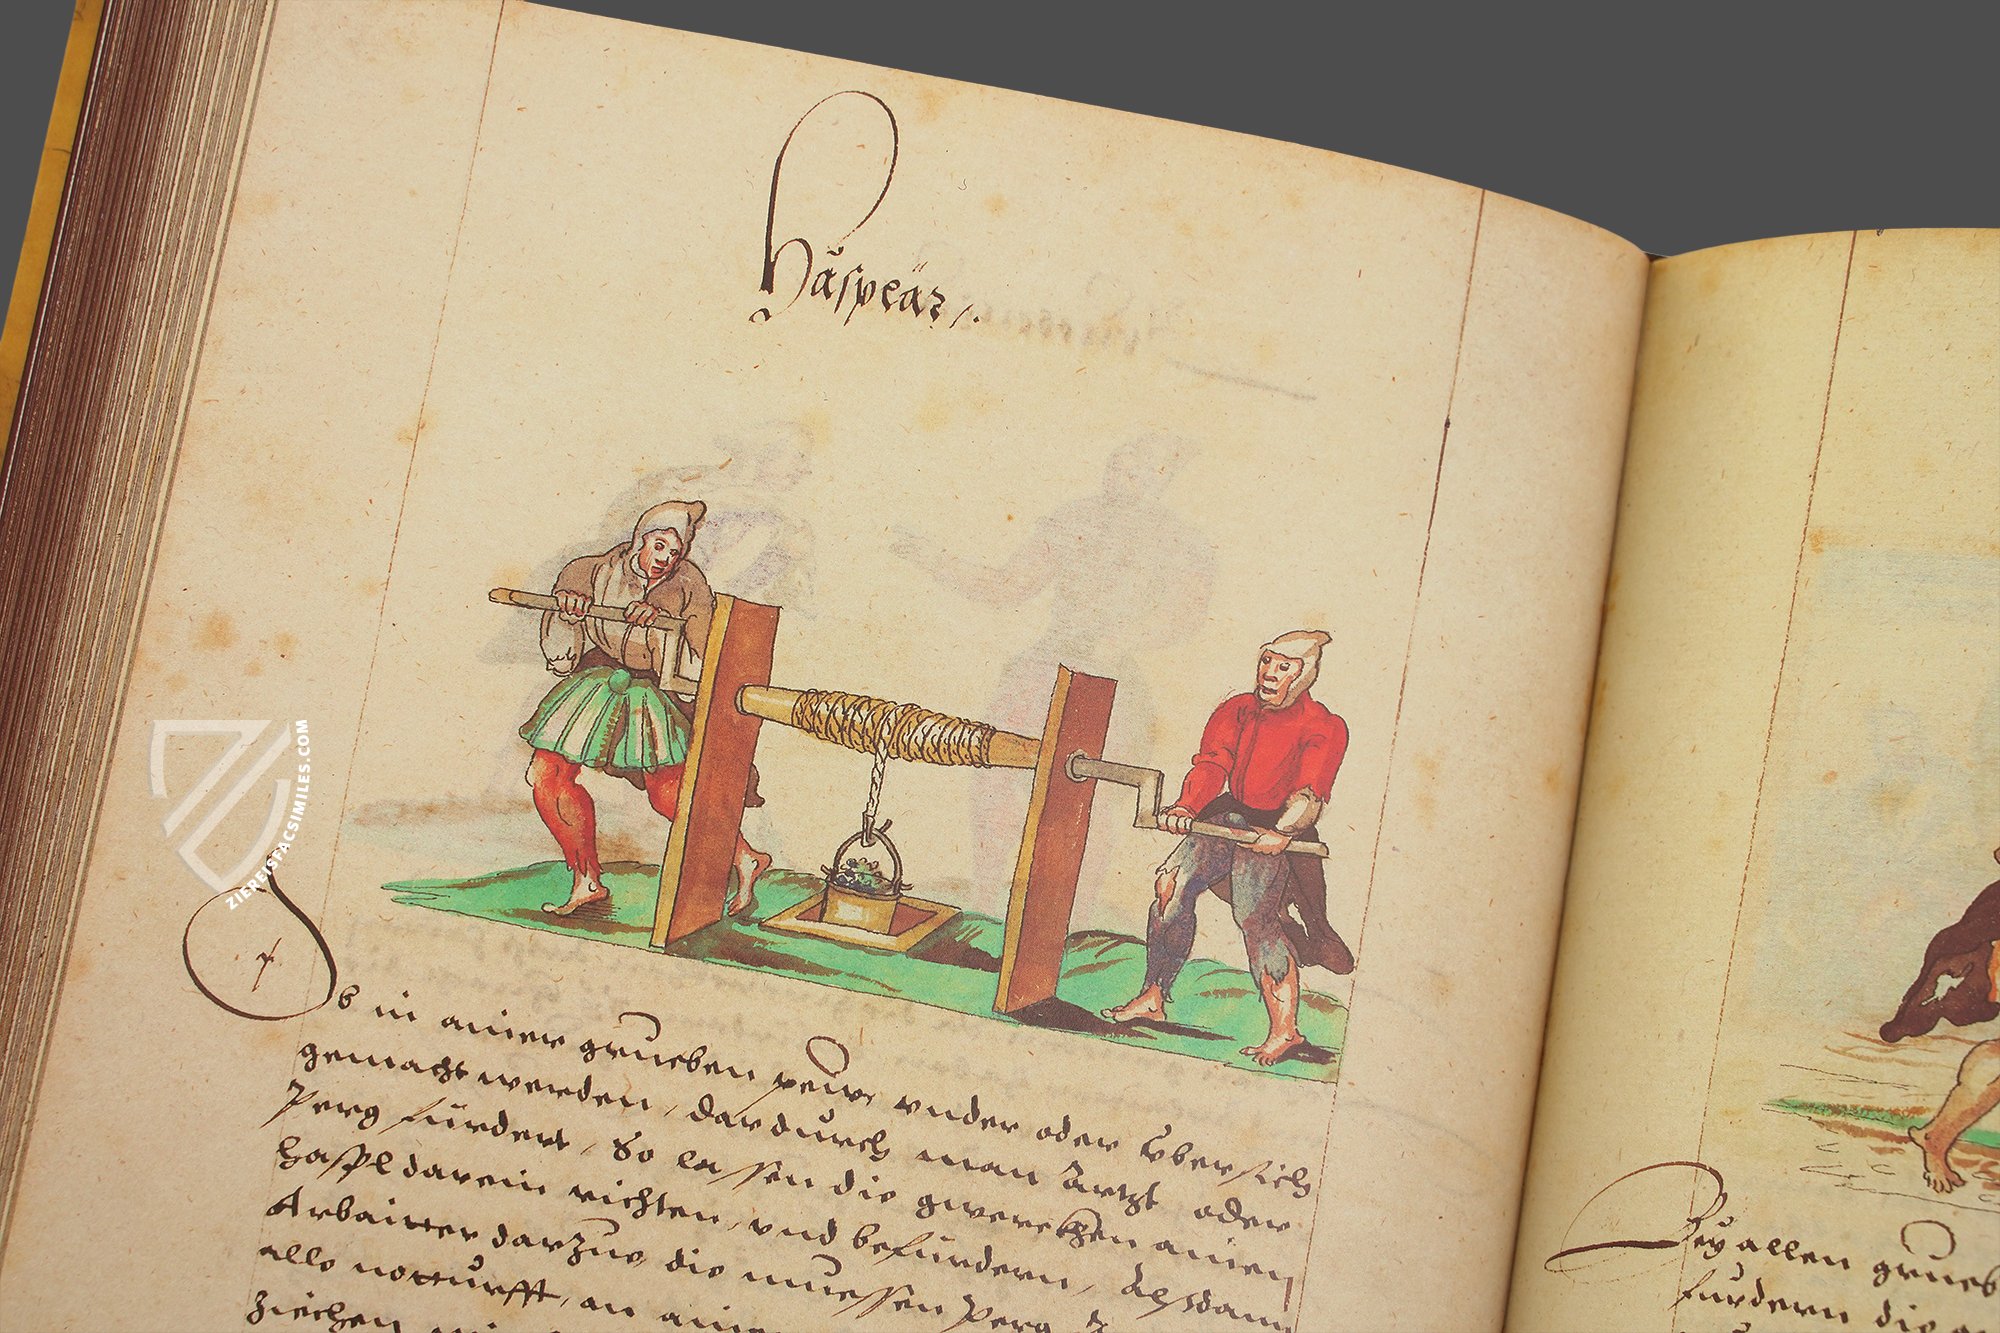 Häspeär
ZIEREISFACSIMILES.COM
Ob in ainer grueben pew vnder oder vbersich
gemacht werden, dardurch man Ärtzt oder
Perg fürdert, So lassen die gwerckhen ainen
haspl darein richten, vnd befürdern, Alsdann
Arbaitter darzue, die muessen Perg
alle notturfft, an ainem
Ziechen
Bey allen grueb
furdern die